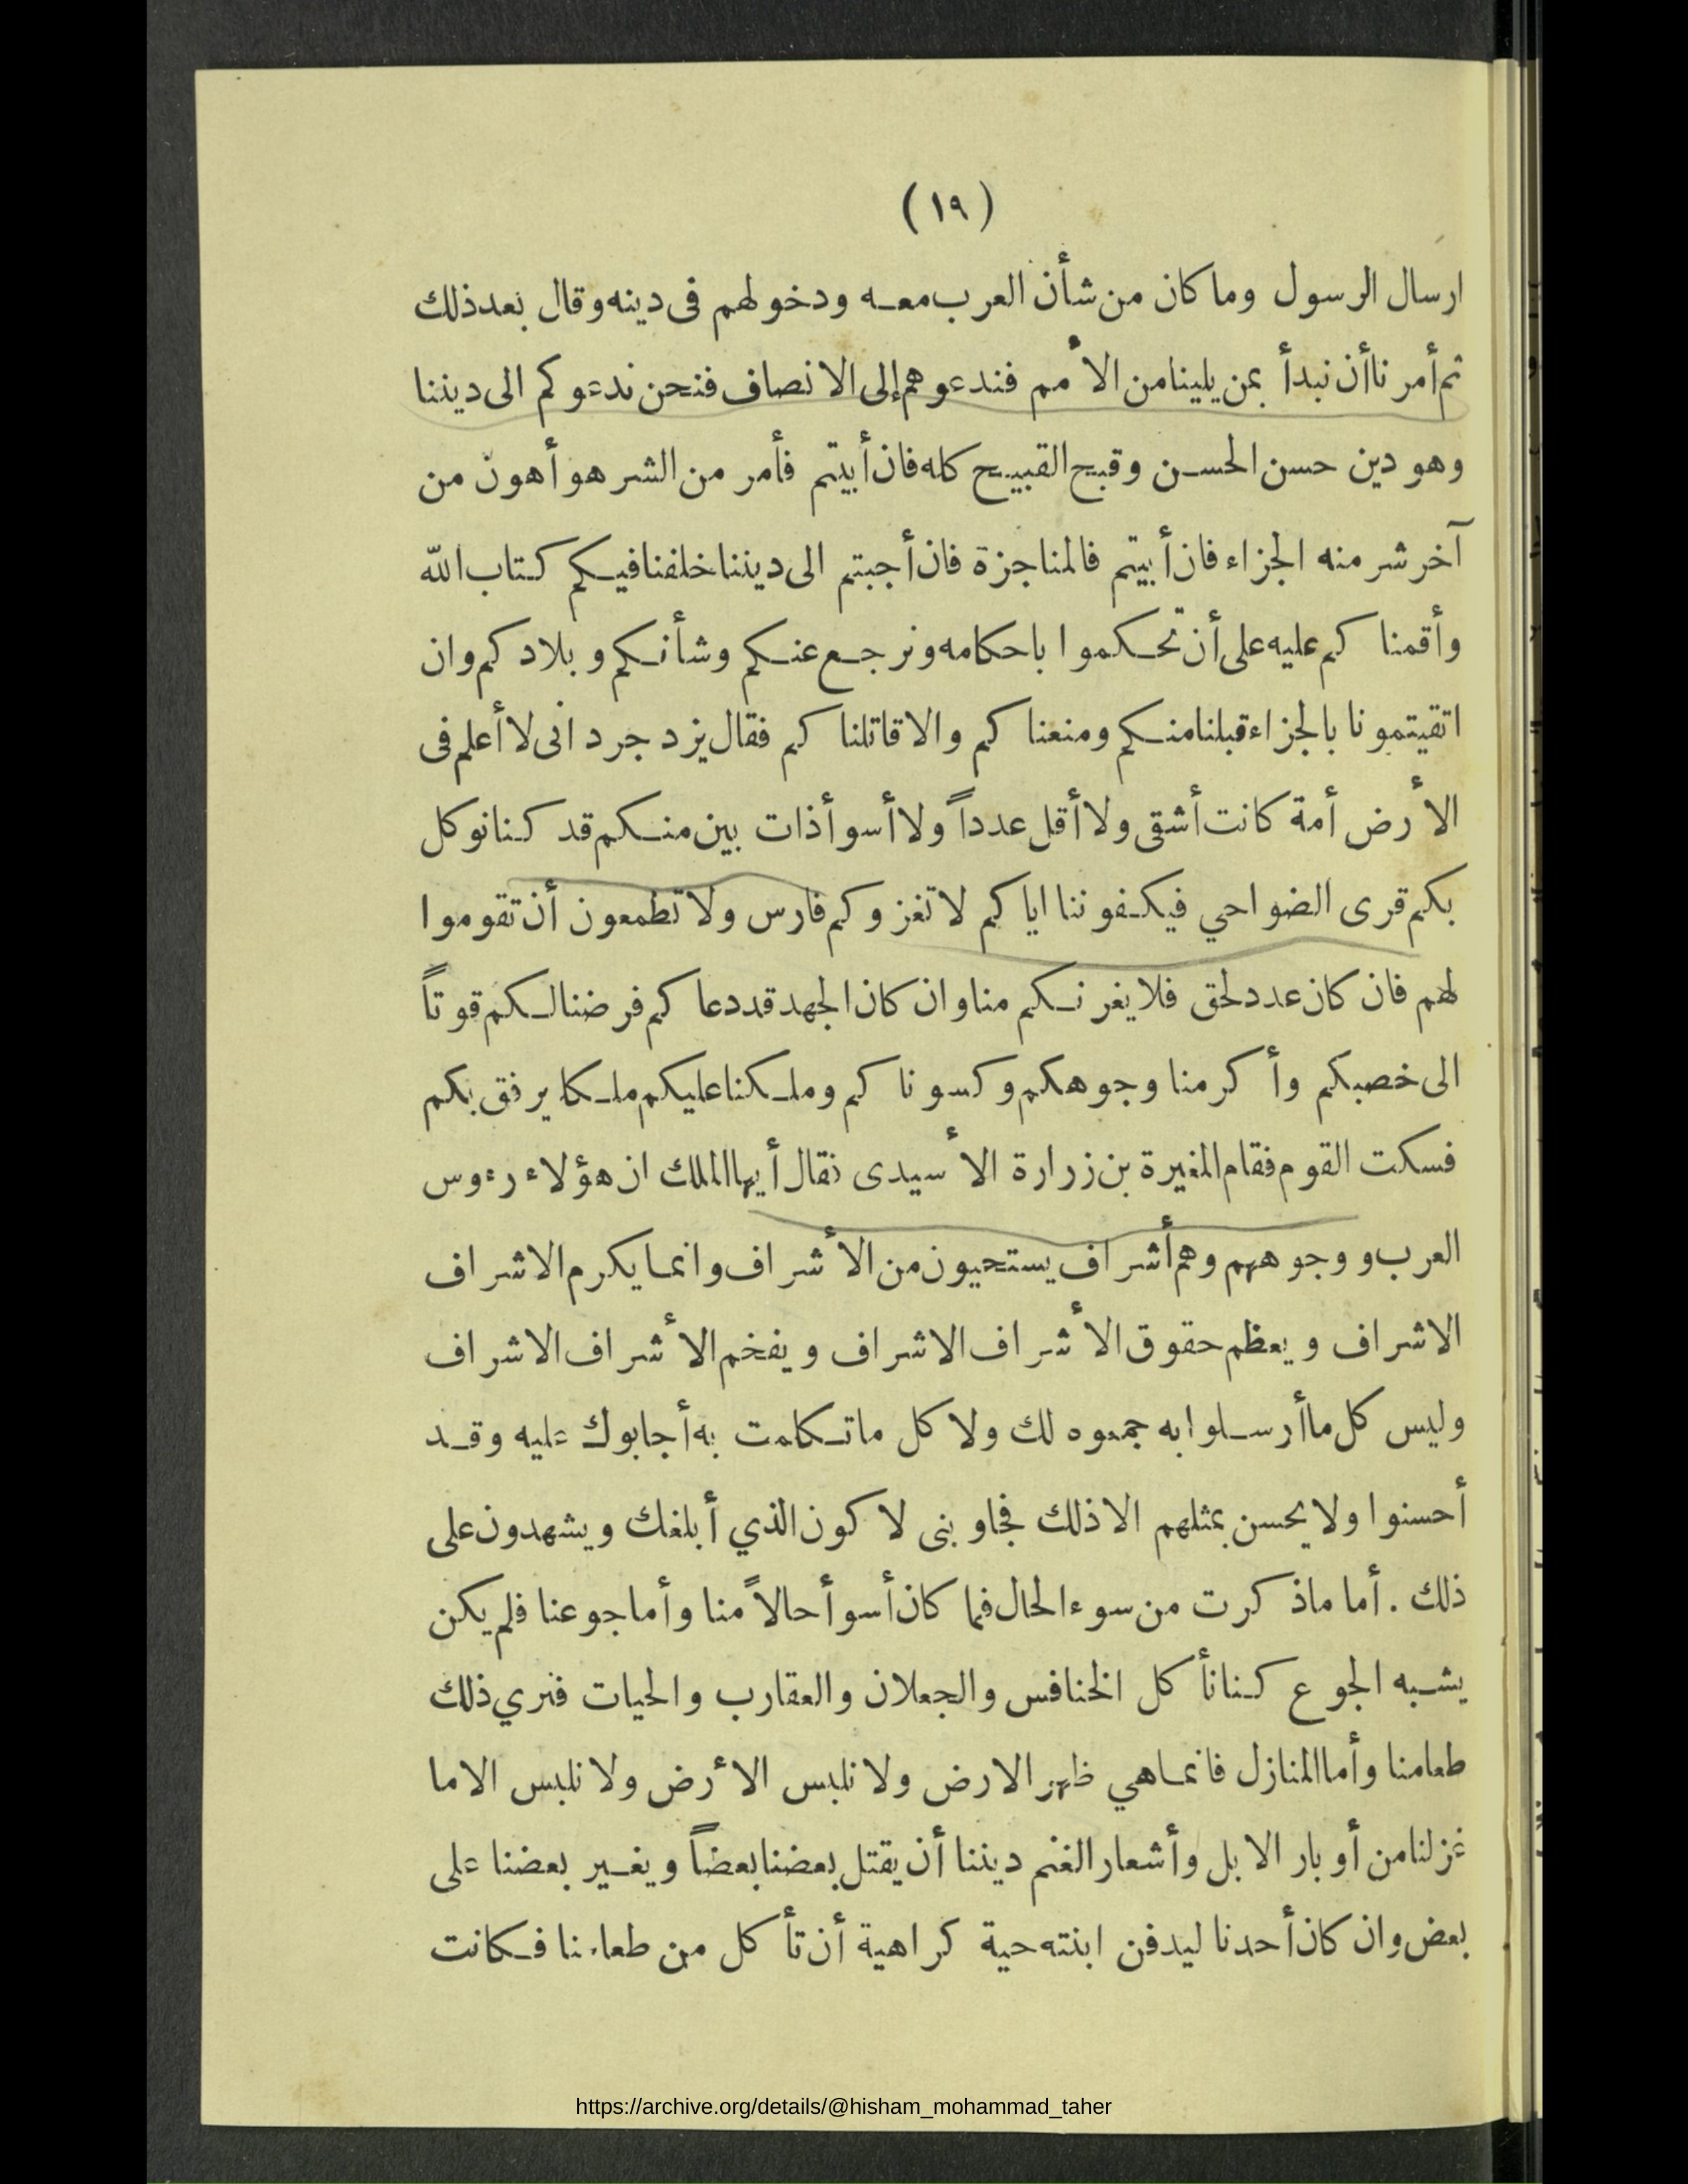 (١٩)
ارسال الرسول وما كان من شأن العرب معه ودخولهم فى دينه وقال بعد ذلك
ثم أمرنا أن نبدأ بمن يلينا من الأمم فندعوهم إلى الانصاف فنحن ندعوكم الى ديننا
وهو دين حسن الحسن وقبح القبيح كله فان أبيتم فأمر من الشر هو أهون من
آخر شر منه الجزاء فان أبيتم فالمناجزة فان أجبتم الى ديننا خلفنا فيكم كتاب الله
وأقمناكم عليه على أن تحكموا باحكامه ونرجع عنكم وشأنكم وبلادكم وان
اتقيتمونا بالجزاء قبلنا منكم ومنعناكم والا قاتلناكم فقال يزدجرد انى لا أعلم فى
الأرض أمة كانت أشقى ولا أقل عدداً ولا أسوأ ذات بين منكم قد كنا نوكل
بكم قرى الضواحي فيكفوننا اياكم لا تغزوكم فارس ولا تطمعون أن تقوموا
لهم فان كان عدد لحق فلا يغرنكم منا وان كان الجهد قد دعاكم فرضنا لكم قوتاً
الى خصبكم وأكرمنا وجوهكم وكسوناكم وملكنا عليكم ملكا يرفق بكم
فسكت القوم فقام المغيرة بن زرارة الأسيدى فقال أيها الملك ان هؤلاء رءوس
العرب ووجوههم وهم أشراف يستحيون من الأشراف وانما يكرم الاشراف
الاشراف ويعظم حقوق الأشراف الاشراف ويفخم الأشراف الاشراف
وليس كل ما أرسلوا به جمعوه لك ولا كل ما تكلمت به أجابوك عليه وقد
أحسنوا ولا يحسن بمثلهم الا ذلك فجاوبنى لاكون الذي أبلغك ويشهدون على
ذلك . أما ما ذكرت من سوء الحال فما كان أسوأ حالاً منا وأما جوعنا فلم يكن
يشبه الجوع كنا نأكل الخنافس والجعلان والعقارب والحيات فنري ذلك
طعامنا وأما المنازل فانما هي ظهر الارض ولا نلبس الأرض ولا نلبس الا ما
غزلنا من أوبار الابل وأشعار الغنم ديننا أن يقتل بعضنا بعضاً ويغير بعضنا على
بعض وان كان أحدنا ليدفن ابنته حية كراهية أن تأكل من طعامنا فكانت
https://archive.org/details/@hisham_mohammad_taher